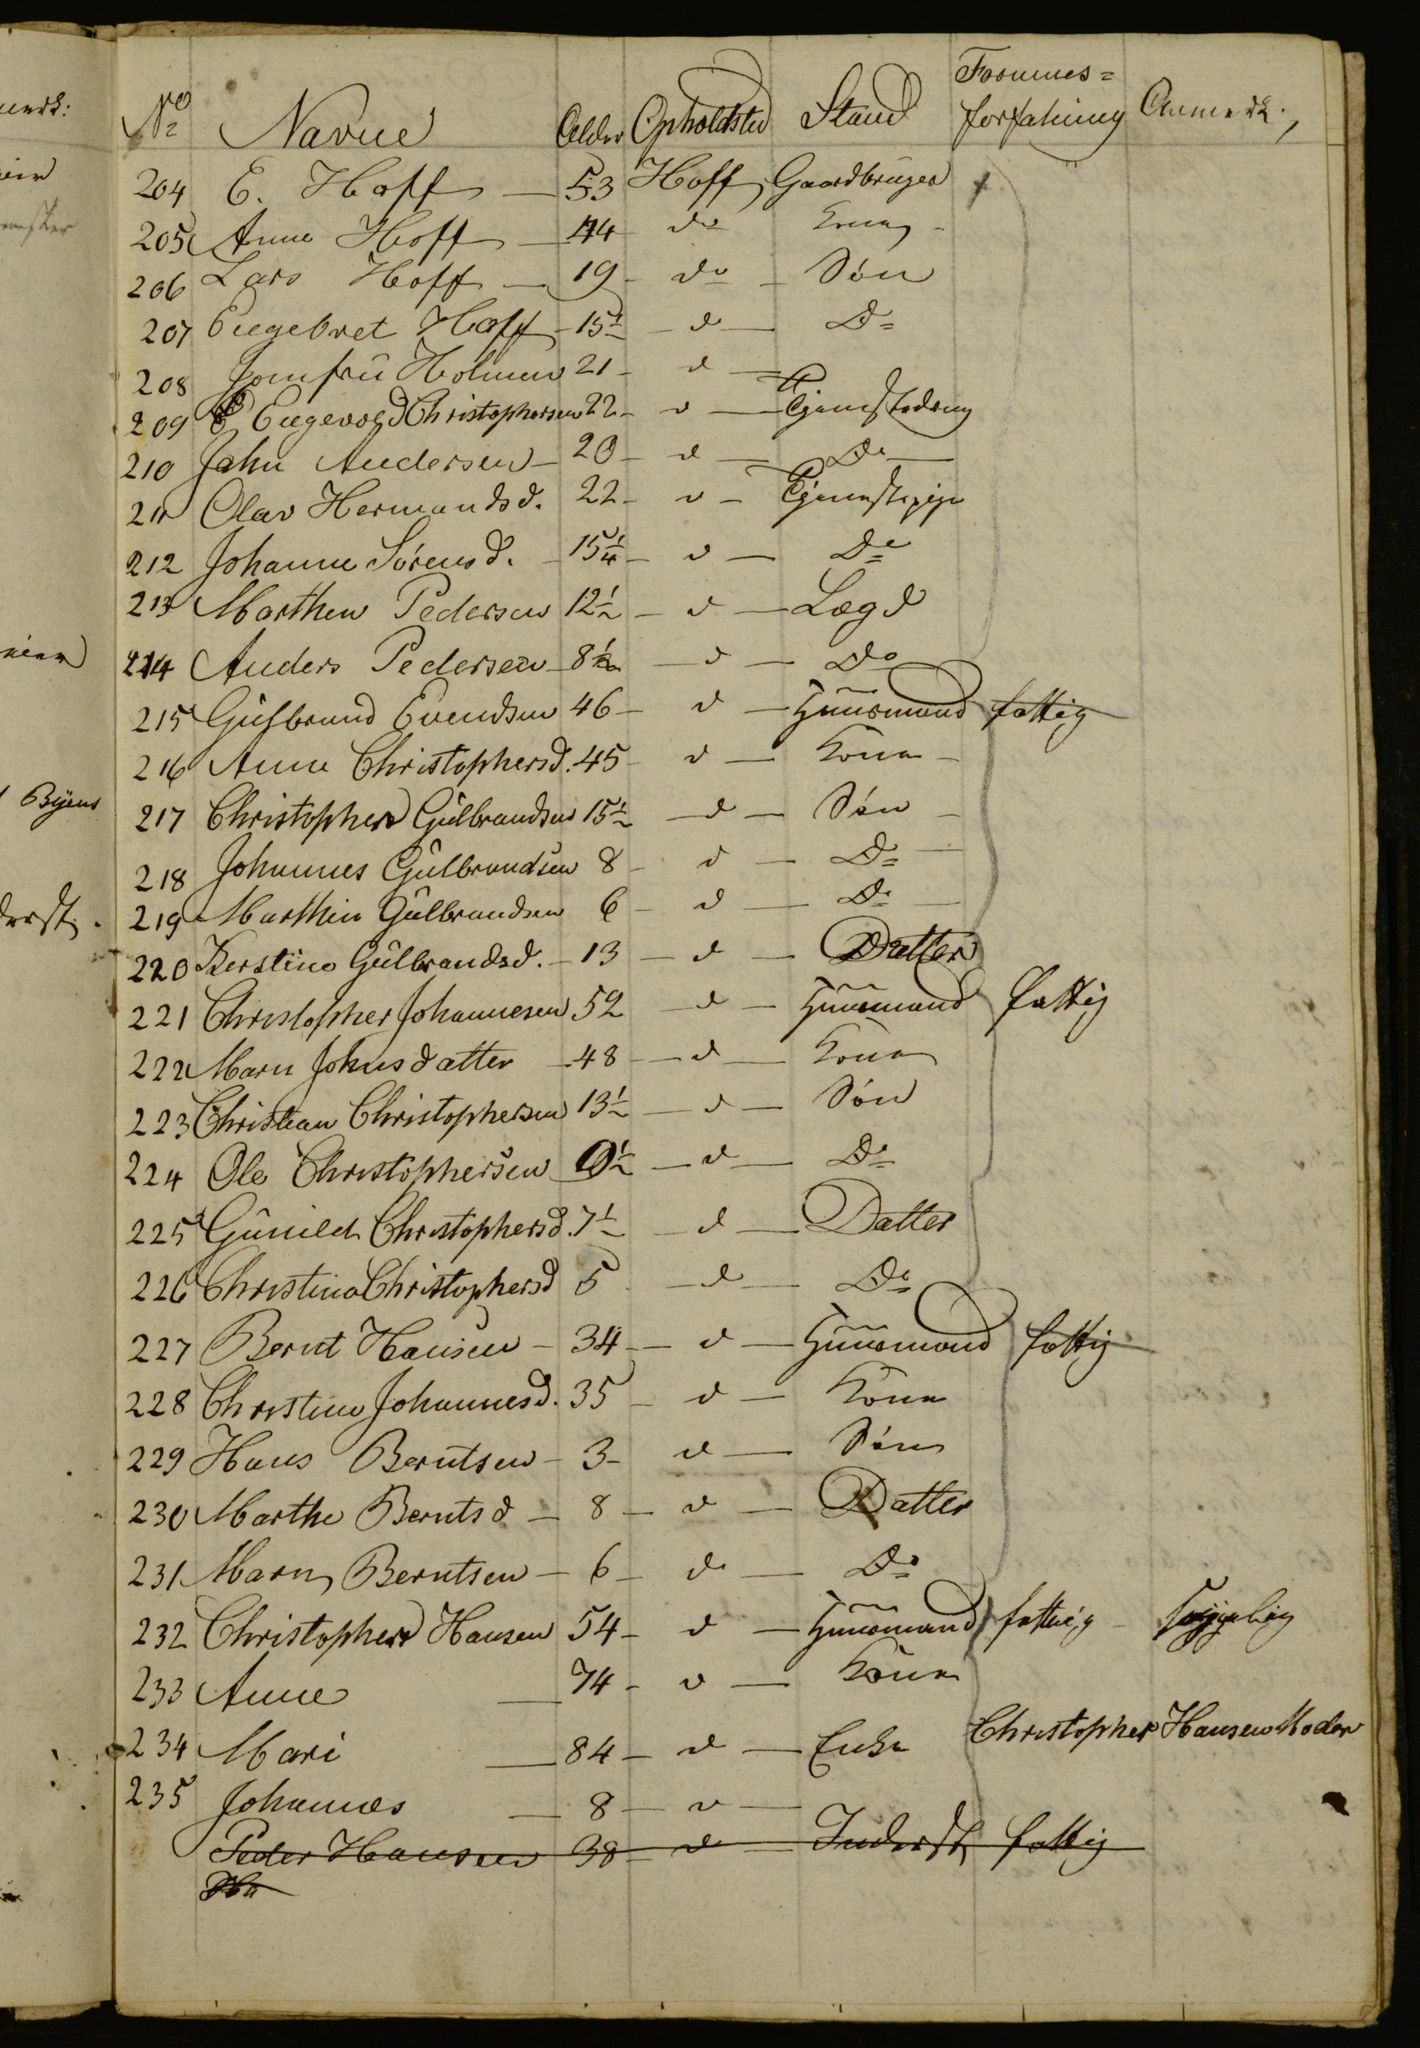 No Navne Alder Opholdsted Stand Formues=forfatning Anmerk.
204 E. Hoff — 53 Hoff Gaardbruger
205 Anne Hoff — 44 do Kone
206 Lars Hoff — 19 - do - Søn
207 Engebret Hoff - 15½ - d — Do
208 Jomfrü Holmen 21 - d —
209 Engevold Christophersen 22 - d — Tjenestedreng
210 John Andersen - 20 - d — Do —
211 Olav Hermandsd. 22 - d - Tjenestepige
212 Johanne Sørensd. - 15¼ - d — Do
213 Marthen Pedersen 12½ - d — Lægd
214 Anders Pedersen - 8½ - d — Do
215 Gulbrand Evendsen 46 - d — Huusmand fattig
216 Anne Christophersd. 45 - d — Kone -
217 Christopher Gülbrandsen 15½ - d — Søn -
218 Johannes Gülbrandsen 8 - d — Do —
219 Marthin Gülbrandsen 6 - d — Do —
220 Kerstine Gülbrandsd. - 13 - d — Datter
221 Christopher Johannesen 52 - d — Huusmand fattig
222 Marn Johnsdatter - 48 - d — Kone
223 Christian Christophersen 13½ - d — Søn
224 Ole Christophersen 9½ - d — Do
225 Günild Christophersd. 7½ - d — Datter
226 Christine Christophersd 5 - d — Do
227 Bernt Hansen - 34 - d — Huusmand fattig
228 Christine Johannesd. 35 - d — Kone
229 Hans Berntsen - 3 - d — Søn
230 Marthe Berntsd - 8 - d — Datter
231 Marn Berntsen - 6 - d — Do
232 Christopher Hansen 54 - d — Huusmand fattig - sygelig
233 Anne — 74 - d — Kone
234 Mari — 84 - d — Enke Christopher Hansens Moder
235 Johannes — 8 - d —
Peder Hansen 38 - d — Inderst fattig